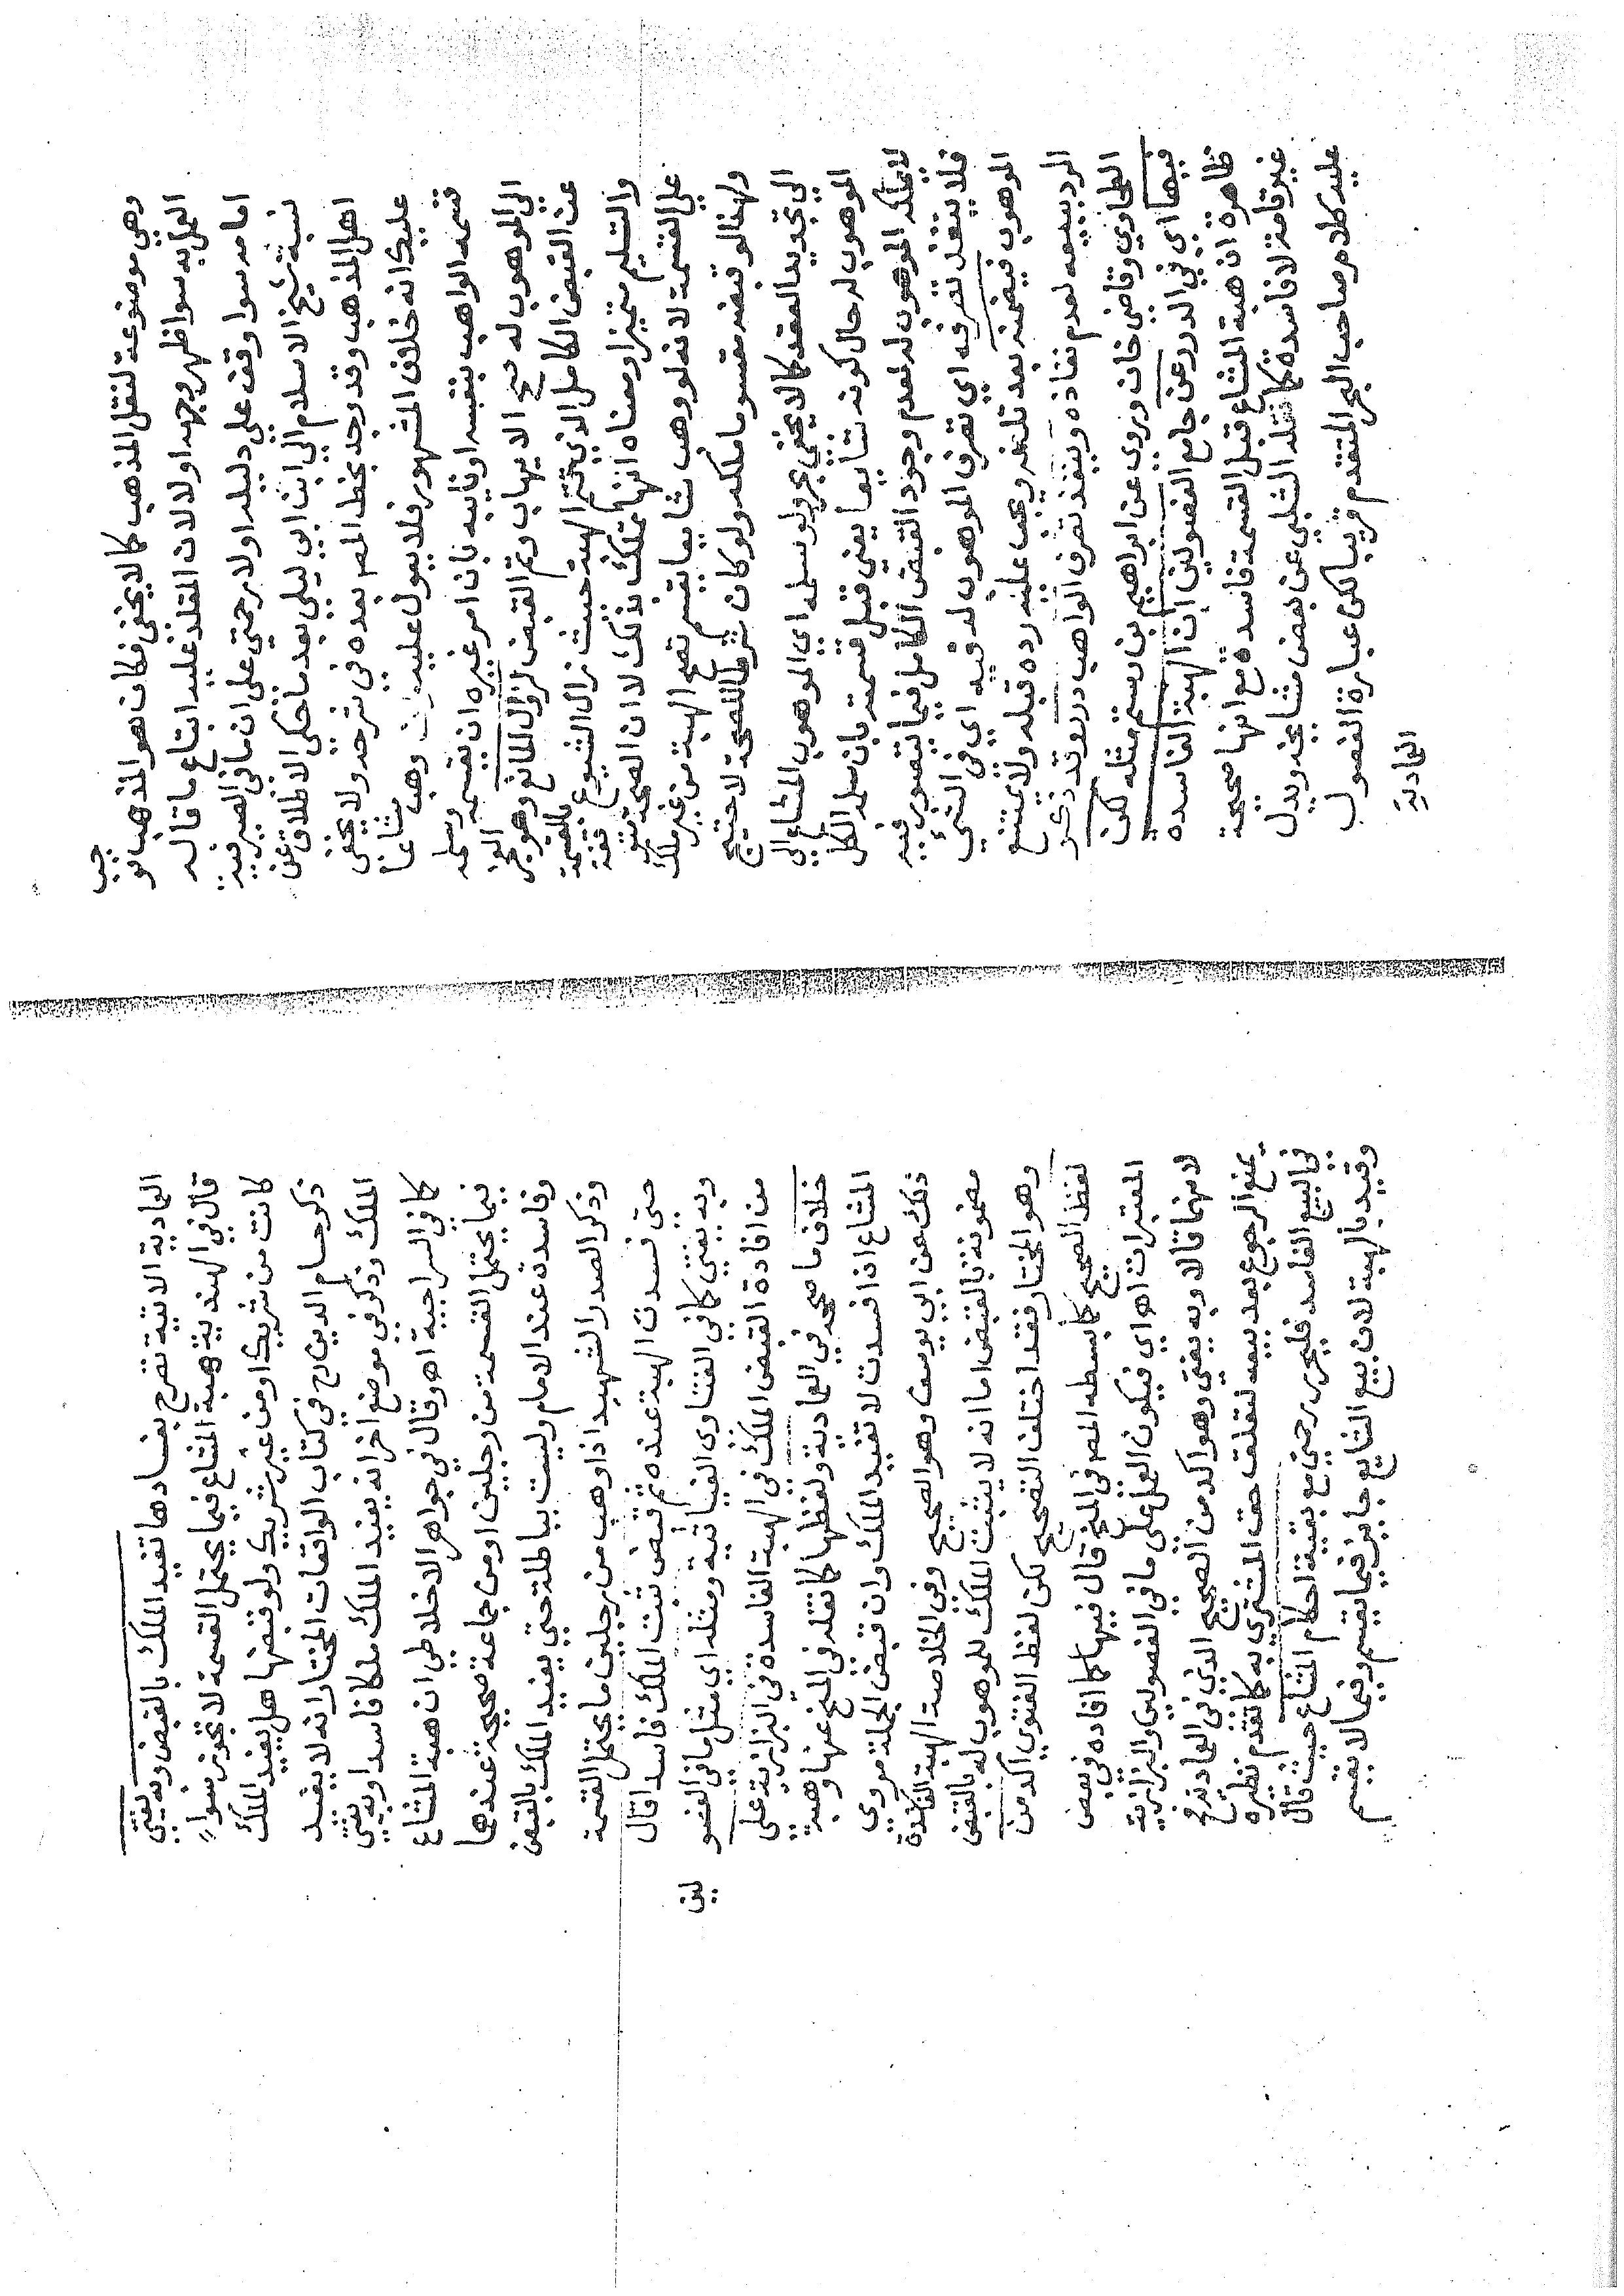 وهي موضوعة لنقل المذهب كما لا يخفى فكان هو المذهب فو
جب
العمل به سوا ظهر وجهه اولا لان المقلد عليه اتباع ما قاله
امامه سوا وقف على دليله اولا رحمتي على ان ما في الصيرفية
نسبة شيخ الاسلام الى ابن ابي ليلى بعد ما حكى الاطلاق عن
اهل المذهب وقد وجد بخط المص بعده في شرحه ولا يخفى
عليك انه خلاف المشهور فلا يعول عليه وهب مشاعا
قسمه الواهب بنفسه او نايبه بان امر غيره ان يقسمه وسلمه
الى الموهوب له صح الايهاب وتم القبض لزوال المانع وهو العجز
عن القبض الكامل الذي تتم الهبة حيث زال الشيوع بالقسمة
والتسليم متميزا ومعناه انها تملك بذلك لا ان الصحة متوقفة
على القسمة لانه لو وهب شايعا يقسم تصح الهبة من غير ملك
ولهذا لو قبضه مقسوما ملكه ولو كان شرطا للصحة لاحتيج
الى تجديد العقد كما لا يخفى بحر ولو سلمه اي الموهوب المشاع الى
الموهوب له حال كونه شايعا يعني قبل قسمته بان سلمه الكل
لا يملكه الموهوب له لعدم وجود القبض الكامل فيما يتصور فيه
فلا ينفذ تصرفه اي تصرف الموهوب له فيه اي في الشي
الموهوب فيضمنه بعد تلفه ويجب عليه رده قبله ولا يمتنع
الرد ببيعه لعدم نفاذه وينفذ تصرف الواهب درر وقد ذكر
الطحاوي وقاضي خان وروي عن ابراهيم بن رستم مثله لكن
فيها اي في الدرر عن جامع الفصولين ان الهبة الفاسدة
ظاهرة ان هبة المشاع قبل القسمة فاسدة مع انها صحيحة
غير تامة لا فاسدة كما نقله الشلبي عن بعض مشايخه ويدل
عليه كلام صاحب البحر المتقدم قريبا لكن عبارة الفصول
العمادية
العمادية الاتية تصرح بفسادها تفيد الملك بالقبض وبه يفتى
قال في الهندية هبة المشاع فيما يحتمل القسمة لا تجوز سواء
كانت من شريك او من غير شريك ولو قبضها هل يفيد الملك
ذكر حسام الدين رح في كتاب الواقعات المختار انه لا يفيد
الملك وذكر في موضع اخر انه يفيد الملك ملكا فاسدا وبه يفتى
كما في السراجية اه وقال في جواهر الاخلاطي ان هبة المشاع
فيما يحتمل القسمة من رجلين او من جماعة صحيحة عندهما
وفاسدة عند الامام وليست بباطلة حتى يفيد الملك بالقبض
وذكر الصدر الشهيد اذا وهب من رجلين ما يحتمل القسمة
حتى فسدت الهبة عنده ثم قبض ثبت الملك فاسدا قال
وبه يفتي كما في الفتاوى الغياثية ومثله اي مثل ما في الفصو
لين
من افادة القبض الملك في الهبة الفاسدة في البزازية على
خلاف ما صححه في العمادية ولفظها كما نقله في المنح عنها وهبة
المشاع اذا فسدت لا تفيد الملك وان قبض الجملة مروي
ذلك عن ابي يوسف وهو الصحيح وفي الخلاصة الهبة الفاسدة
مضمونة بالقبض اما انه لا يثبت الملك للموهوب له بالقبض
وهو المختار فقد اختلف التصحيح لكن لفظ الفتوى اكد من
لفظ الصحيح كما بسطه المص في المنح قال فيها كما افاده في بعض
المعتبرات اه اي فيكون العمل على ما في الفصولين والبزازية
لانهما قالا وبه يفتي وهو اكد من الصحيح الذي في العمادية ح
يمنع الرجوع بعد بيعه لتعلق حق المشتري به كما تقدم نظيره
في البيع الفاسد فليحرر رحمتي مع بقية احكام المشاع حيث قال
وقيد بالهبة لان بيع الشايع جايز فيما يقسم وفيما لا يقسم